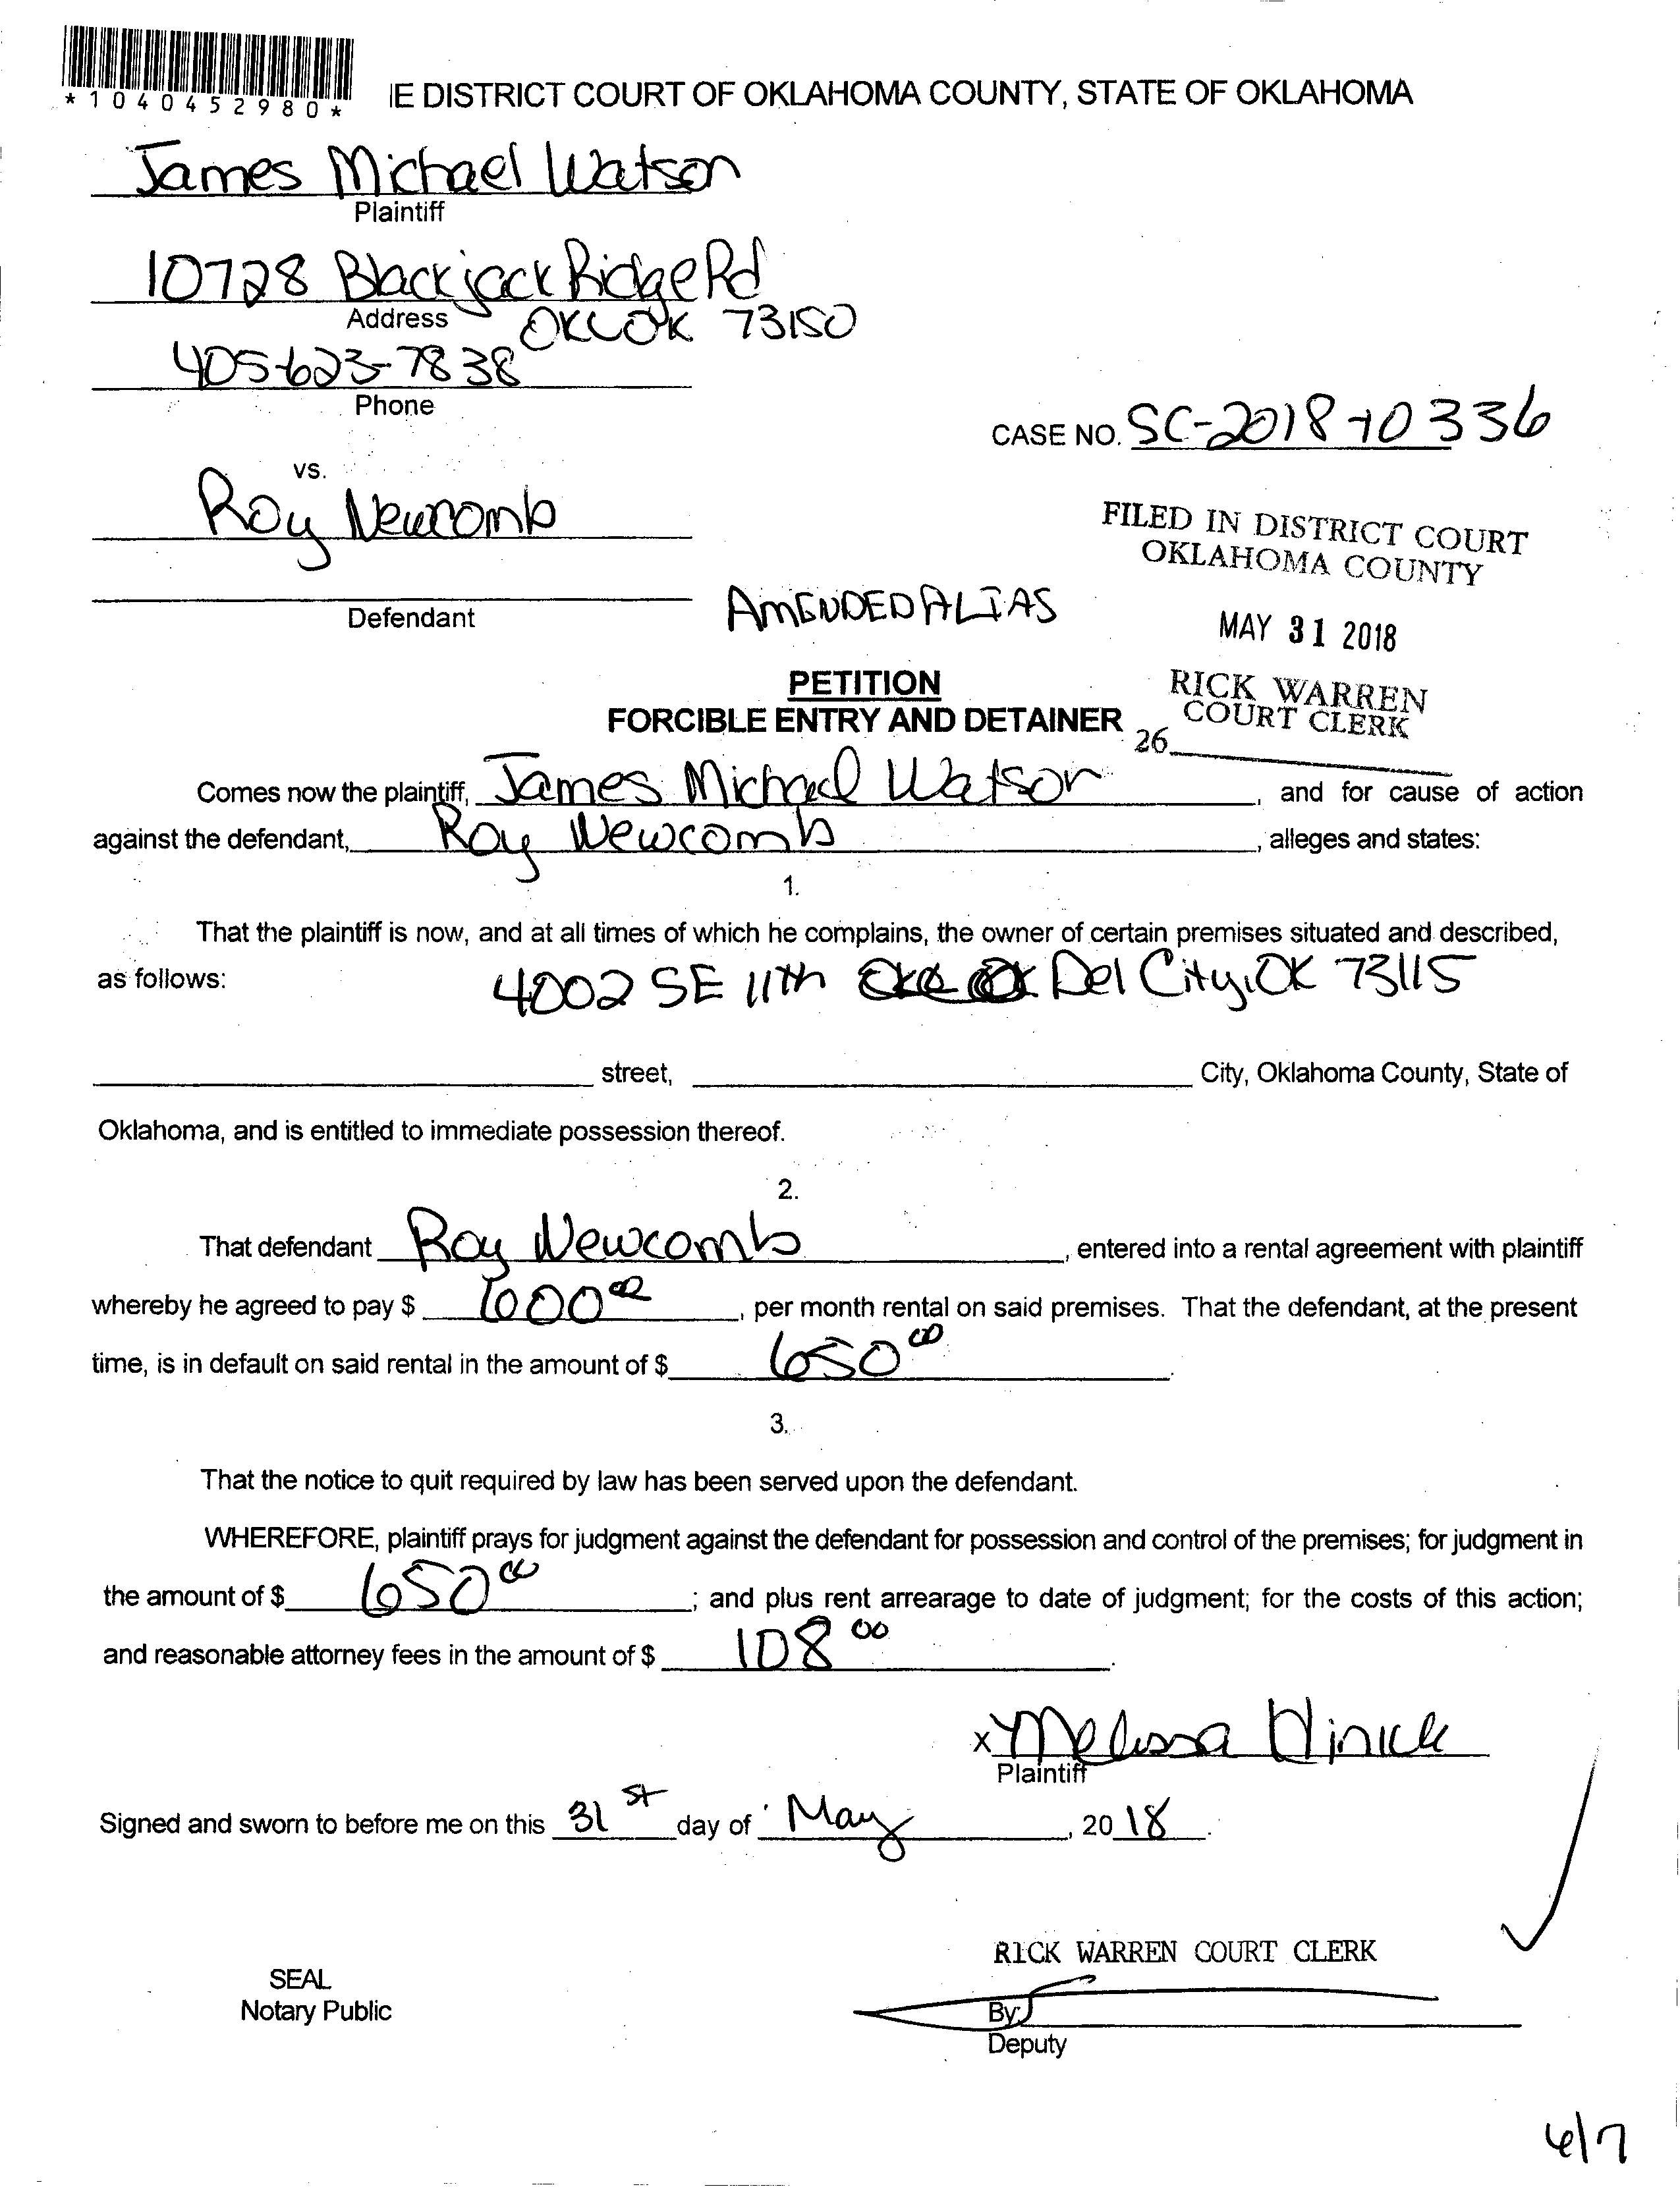 *1040452980*
IE DISTRICT COURT OF OKLAHOMA COUNTY, STATE OF OKLAHOMA
James Michael Watson
Plaintiff
10728 Blackjack Ridge Rd
Address OKC OK 73150
405-623-7838
Phone
CASE NO. SC-2018-10336
vs.
Roy Newcomb
FILED IN DISTRICT COURT
OKLAHOMA COUNTY
Defendant
AMENDED ALIAS
MAY 31 2018
PETITION
FORCIBLE ENTRY AND DETAINER
RICK WARREN
COURT CLERK
26
Comes now the plaintiff, James Michael Watson, and for cause of action
against the defendant, Roy Newcomb, alleges and states:
1.
That the plaintiff is now, and at all times of which he complains, the owner of certain premises situated and described,
as follows: 4002 SE 11th Del City, OK 73115
street, City, Oklahoma County, State of
Oklahoma, and is entitled to immediate possession thereof.
2.
That defendant Roy Newcomb, entered into a rental agreement with plaintiff
whereby he agreed to pay $ 600 00, per month rental on said premises. That the defendant, at the present
time, is in default on said rental in the amount of $ 650 00.
3.
That the notice to quit required by law has been served upon the defendant.
WHEREFORE, plaintiff prays for judgment against the defendant for possession and control of the premises; for judgment in
the amount of $ 650 00; and plus rent arrearage to date of judgment; for the costs of this action;
and reasonable attorney fees in the amount of $ 108 00.
x Melissa
Plaintiff
Signed and sworn to before me on this 31st day of May, 2018.
RICK WARREN COURT CLERK
SEAL
Notary Public
By:
Deputy
6/7